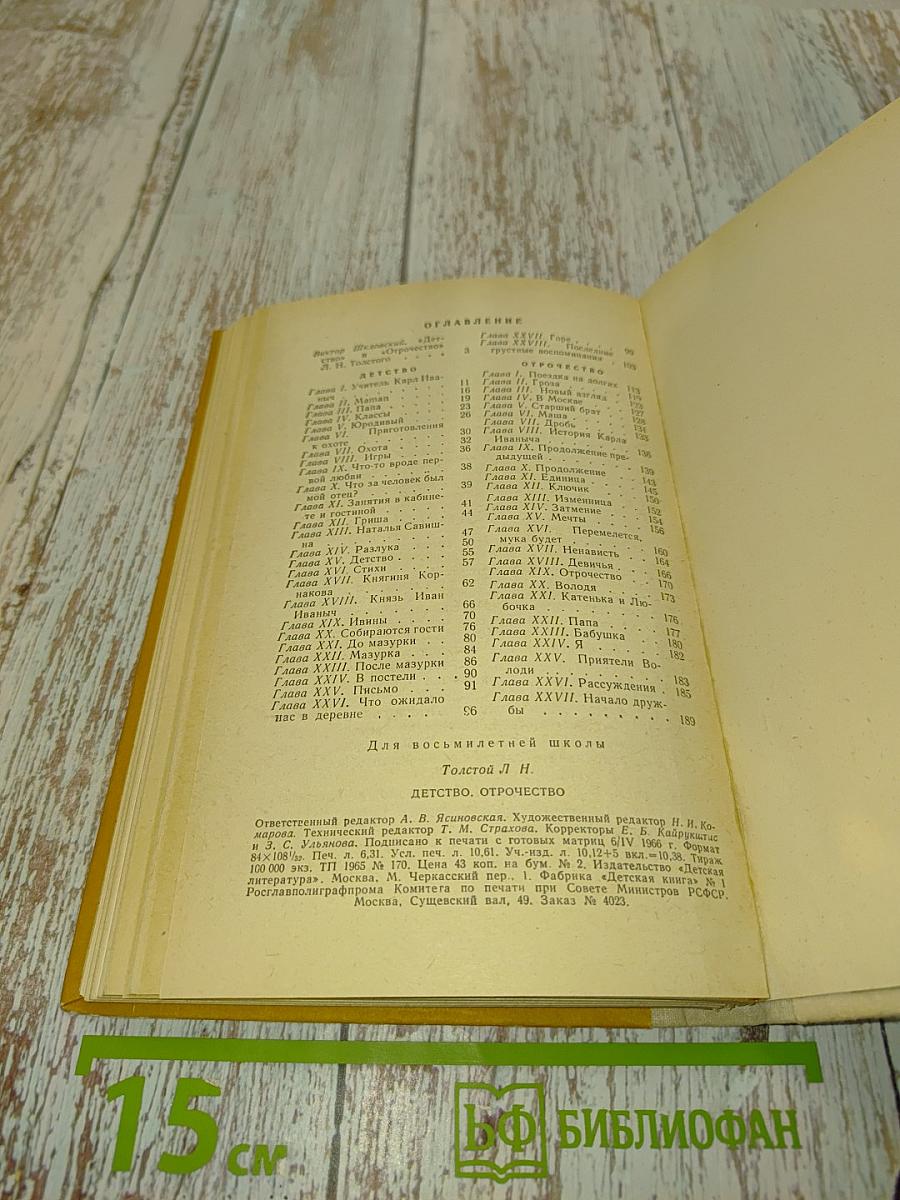 ОГЛАВЛЕНИЕ
Виктор Шкловский. «Дет-
ство» и «Отрочество»
Л. Н. Толстого . . . . 3
ДЕТСТВО
Глава I. Учитель Карл Ива-
ныч . . . . . . . 11
Глава II. Maman . . . . 16
Глава III. Папа . . . . 19
Глава IV. Классы . . . . 23
Глава V. Юродивый . . . 26
Глава VI. Приготовления
к охоте . . . . . . 30
Глава VII. Охота . . . . 32
Глава VIII. Игры . . . . 36
Глава IX. Что-то вроде пер-
вой любви . . . . . 38
Глава X. Что за человек был
мой отец? . . . . . 39
Глава XI. Занятия в кабине-
те и гостиной . . . . 41
Глава XII. Гриша . . . . 44
Глава XIII. Наталья Савиш-
на . . . . . . . 47
Глава XIV. Разлука . . . 50
Глава XV. Детство . . . . 55
Глава XVI. Стихи . . . . 57
Глава XVII. Княгиня Кор-
накова . . . . . . 62
Глава XVIII. Князь Иван
Иваныч . . . . . . 66
Глава XIX. Ивины . . . . 70
Глава XX. Собираются гости 76
Глава XXI. До мазурки . . . 80
Глава XXII. Мазурка . . . 84
Глава XXIII. После мазурки 86
Глава XXIV. В постели . . . 90
Глава XXV. Письмо . . . . 91
Глава XXVI. Что ожидало
нас в деревне . . . . 96
Глава XXVII. Горе . . . . 99
Глава XXVIII. Последние
грустные воспоминания . 103
ОТРОЧЕСТВО
Глава I. Поездка на долгих 113
Глава II. Гроза . . . . 119
Глава III. Новый взгляд .
Глава IV. В Москве . . . 127
Глава V. Старший брат . . 128
Глава VI. Маша . . . . 131
Глава VII. Дробь . . . . 133
Глава VIII. История Карла
Иваныча . . . . . . 136
Глава IX. Продолжение пре-
дыдущей . . . . . . 139
Глава X. Продолжение . . 143
Глава XI. Единица . . . 145
Глава XII. Ключик . . . 150
Глава XIII. Изменница . . 152
Глава XIV. Затмение . . . 154
Глава XV. Мечты . . . . 156
Глава XVI. Перемелется,
мука будет . . . . . 160
Глава XVII. Ненависть . . 164
Глава XVIII. Девичья . . . 166
Глава XIX. Отрочество . . 170
Глава XX. Володя . . . . 173
Глава XXI. Катенька и Лю-
бочка . . . . . . 176
Глава XXII. Папа . . . . 177
Глава XXIII. Бабушка . . . 180
Глава XXIV. Я . . . . . 182
Глава XXV. Приятели Во-
лоди . . . . . . . 183
Глава XXVI. Рассуждения . 185
Глава XXVII. Начало друж-
бы . . . . . . . . . 189
Для восьмилетней школы
Толстой Л. Н.
ДЕТСТВО. ОТРОЧЕСТВО
Ответственный редактор А. В. Ясиновская. Художественный редактор Н. И. Ко-
марова. Технический редактор Т. М. Страхова. Корректоры Е. Б. Кайрукштис
и З. С. Ульянова. Подписано к печати с готовых матриц 6/IV 1966 г. Формат
84×108¹/₃₂. Печ. л. 6,31. Усл. печ. л. 10,61. Уч.-изд. л. 10,12+5 вкл.=10,38. Тираж
100 000 экз. ТП 1965 № 170. Цена 43 коп. на бум. № 2. Издательство «Детская
литература». Москва. М. Черкасский пер., 1. Фабрика «Детская книга» № 1
Росглавполиграфпрома Комитета по печати при Совете Министров РСФСР.
Москва, Сущевский вал, 49. Заказ № 4023.
15 см
БФ БИБЛИОФАН